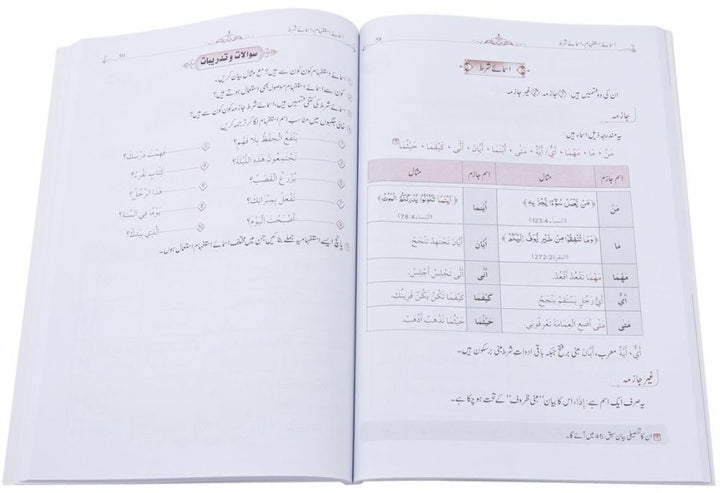 اسمائے استفہام، اسمائے شرط
58
اسمائے شرط
ان کی دو قسمیں ہیں: ① جازمہ ② غیر جازمہ
جازمہ
یہ مندرجہ ذیل اسماء ہیں:
مَنْ ، مَا ، مَهْمَا ، أَيُّ/ أَيَّةُ ، مَتٰى ، أَيْنَمَا ، أَيَّانَ ، أَنّٰى ، كَيْفَمَا ، حَيْثُمَا
اسم جازم مثال اسم جازم مثال
مَنْ ﴿مَنْ يَّعْمَلْ سُوْٓءًا يُّجْزَ بِهٖ﴾ (النساء 123:4) أَيْنَمَا ﴿اَيْنَمَا تَكُوْنُوْا يُدْرِكْكُّمُ الْمَوْتُ﴾ (النساء 78:4)
مَا ﴿وَمَا تُنْفِقُوْا مِنْ خَيْرٍ يُّوَفَّ اِلَيْكُمْ﴾ (البقرة 272:2) أَيَّانَ أَيَّانَ تَجْتَهِدْ تَنْجَحْ.
مَهْمَا مَهْمَا تَفْعَلْ أَفْعَلْ. أَنّٰى أَنّٰى تَجْلِسْ أَجْلِسْ.
أَيُّ أَيُّ رَجُلٍ يَسْتَقِمْ يَنْجَحْ. كَيْفَمَا كَيْفَمَا تَكُنْ يَكُنْ قَرِينُكَ.
مَتٰى مَتٰى أَضَعِ الْعِمَامَةَ تَعْرِفُونِي. حَيْثُمَا حَيْثُمَا تَذْهَبْ أَذْهَبْ.
أَيُّ، أَيَّةُ معرب، أَيَّانَ مبنی بر فتح جبکہ باقی ادوات شرط مبنی بر سکون ہیں۔
غیر جازمہ
یہ صرف ایک اسم ہے: إِذَا، اس کا بیان ”مبنی ظروف“ کے تحت ہو چکا ہے۔
ان کا تفصیلی بیان سبق: 45 میں آئے گا۔
اسمائے استفہام، اسمائے شرط
59
سوالات و تدریبات
① اسمائے استفہام کون کون سے ہیں؟ مع مثال بیان کریں۔
② کون سے اسمائے استفہام موصولہ بھی استعمال ہوتے ہیں؟
③ اسمائے شرط کی کتنی قسمیں ہیں، اسمائے شرط جازمہ کون کون سے ہیں؟
④ خالی جگہوں میں مناسب اسم استفہام لگا کر ترجمہ کریں۔
① يَنْفَعُ الْحِفْظُ بِلَا فَهْمٍ؟ ② فَهِمْتَ دَرْسَكَ؟
③ تَجْتَمِعُونَ هٰذِهِ اللَّيْلَةَ؟ ④ كِتَابٍ تَقْرَأُ؟
⑤ يُزْرَعُ الْقَصَبُ؟ ⑥ هٰذَا الرَّجُلُ؟
⑦ تَفْعَلُ بِمِيْرَاثِكَ؟ ⑧ يَوْمًا فِي السَّنَةِ؟
⑨ أَصْبَحْتَ الْيَوْمَ؟ ⑩ الَّذِي بِيَدِكَ؟
⑤ پانچ ایسے استفہامیہ جملے بنائیں جن میں مختلف اسمائے استفہام استعمال ہوں۔